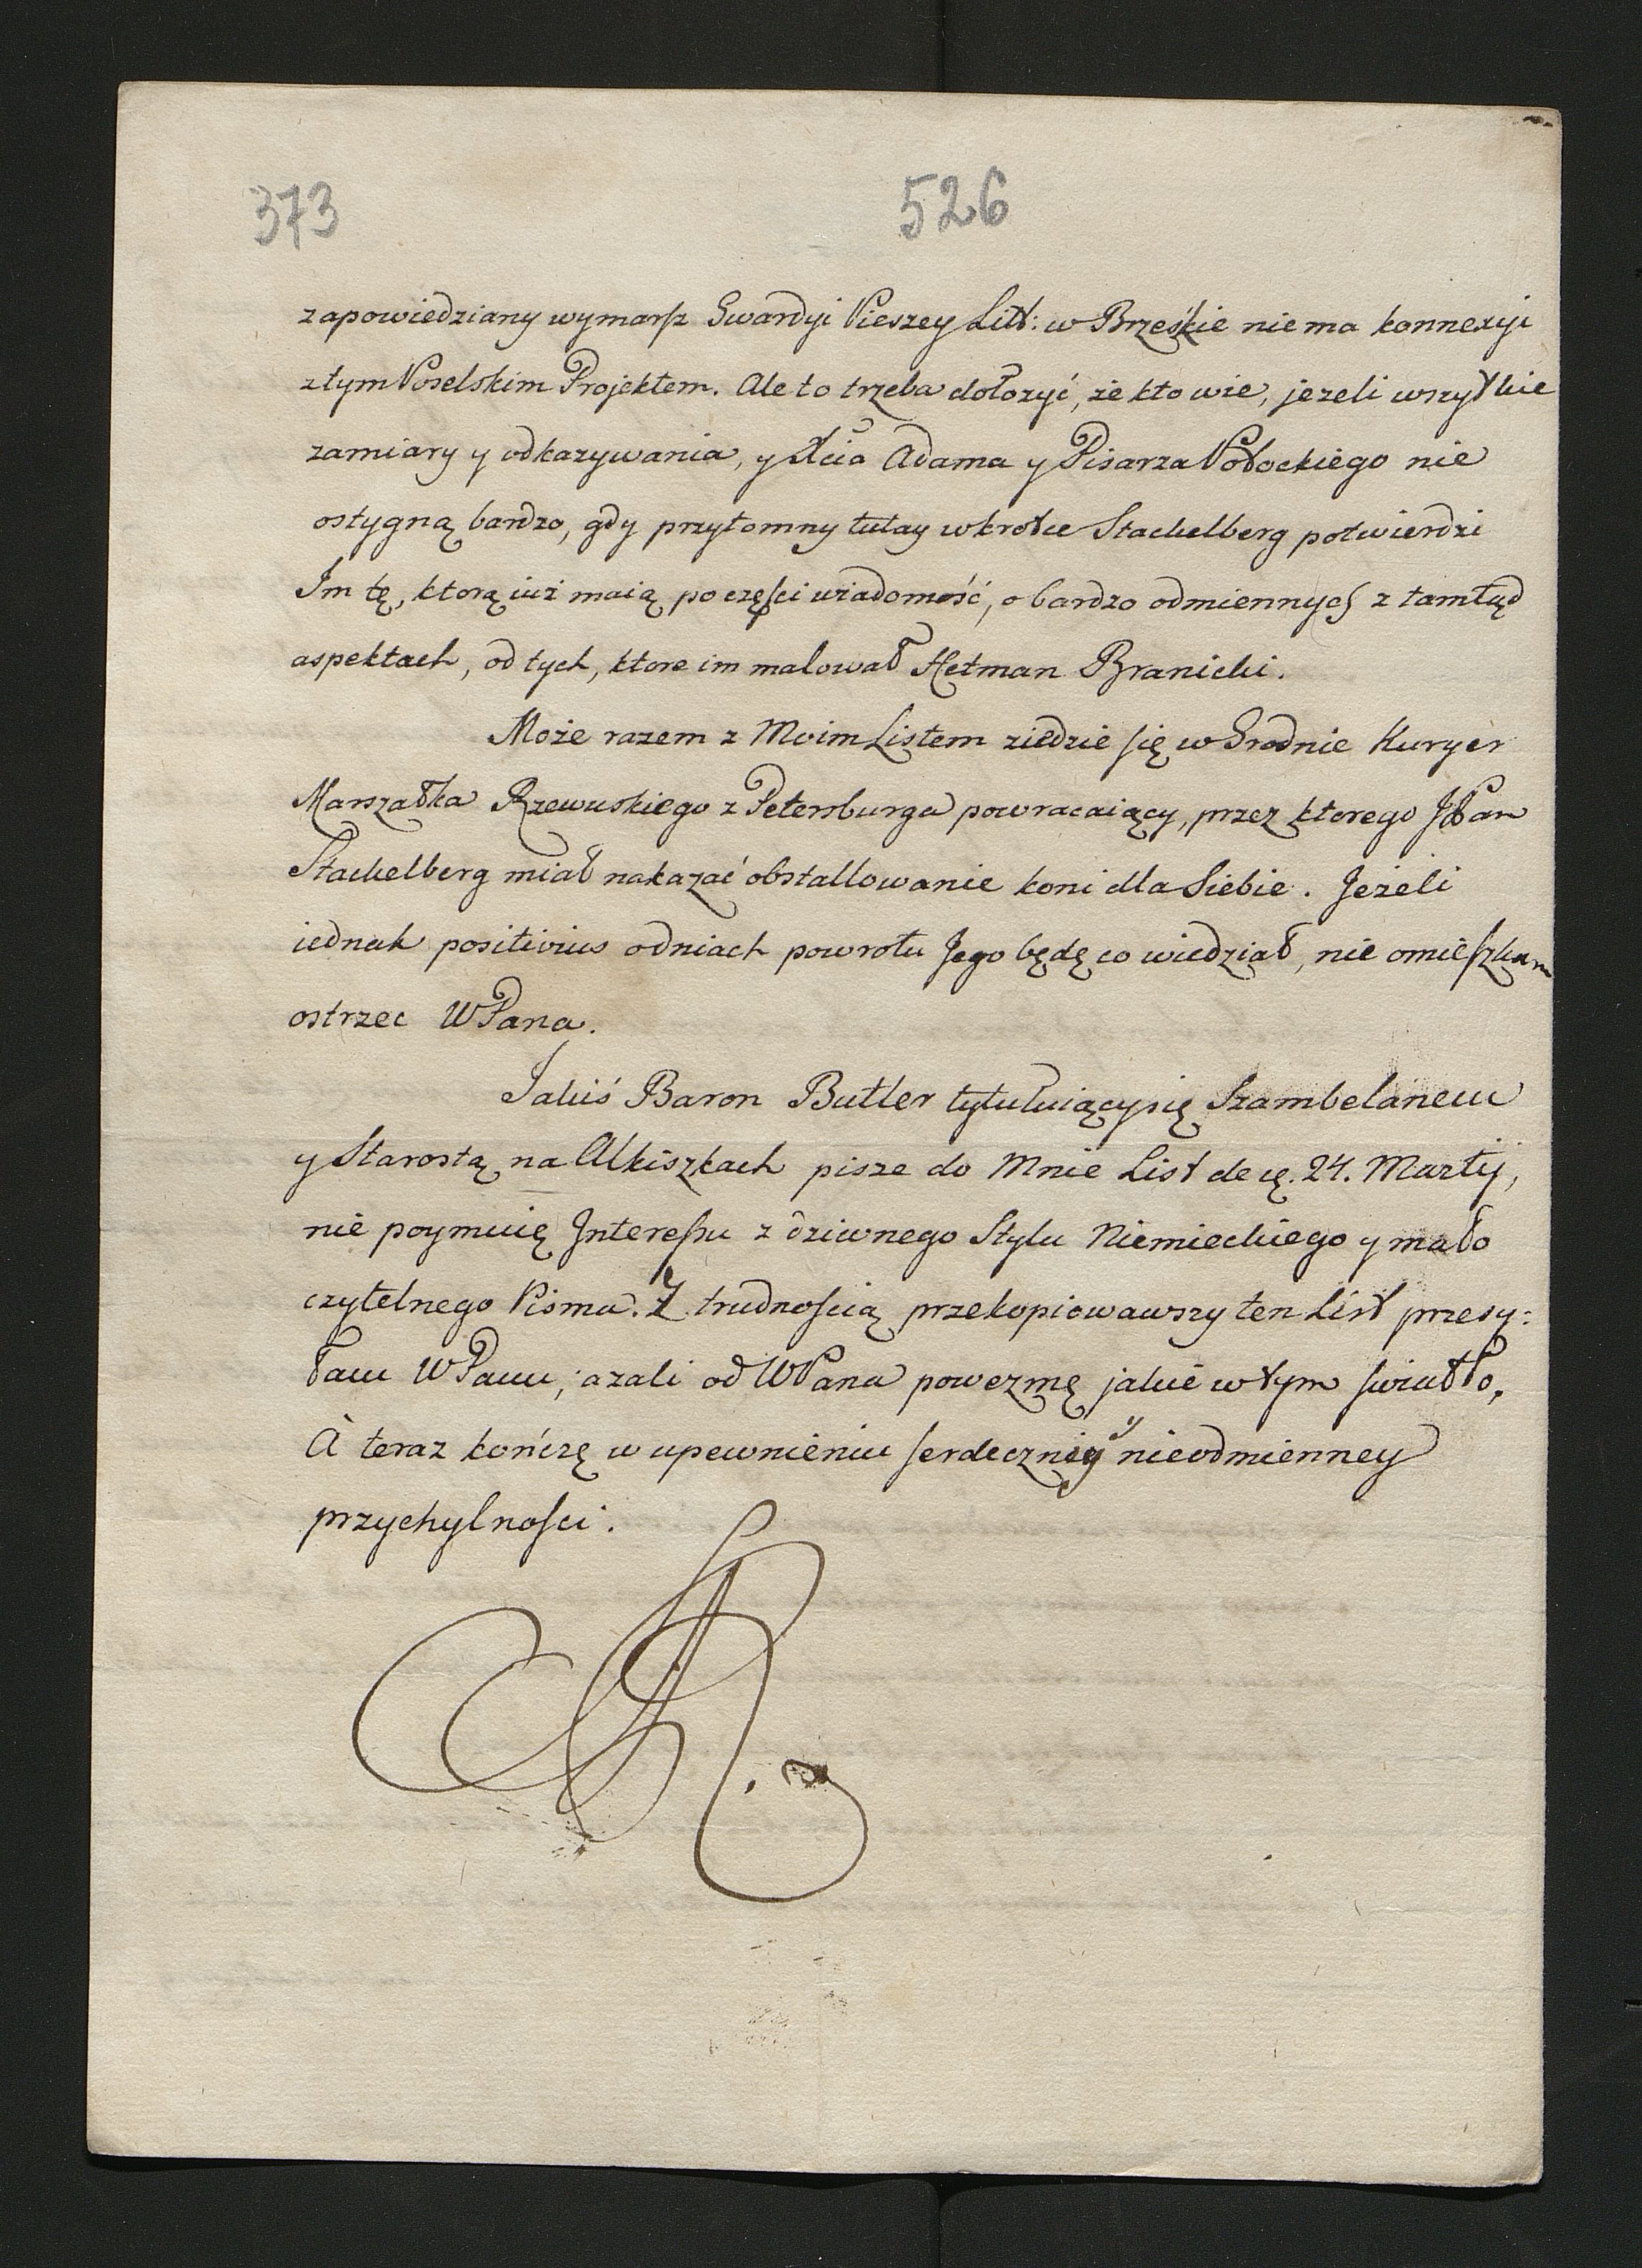 373 526
zapowiedziany wymarsz Gwardyi Pieszey Litt: w Brześkie nie ma konnexyi
z tym Poselskim Projektem. Ale to trzeba dołożyć, że kto wie, jeżeli wszytkie
zamiary y odkazywania, y Xcia Adama y Pisarza Potockiego nie
ostygną bardzo, gdy przytomny tutay wkrotce Stackelberg potwierdzi
Im tę, ktorą iuż maią po części wiadomość, o bardzo odmiennych z tamtąd
aspektach, od tych, ktore im malował Hetman Branicki.
Może razem z Moim Listem ziedzie się w Grodnie Kuryer
Marszałka Rzewuskiego z Petersburga powracaiący, przez ktorego JPan
Stackelberg miał nakazać obstallowanie koni dla Siebie. Jeżeli
iednak positivius o dniach powrotu Jego będę co wiedział, nie omieszkam
ostrzec WPana.
Jakiś Baron Butler tytułuiący się Szambelanem
y Starostą na Olkiszkach pisze do Mnie List de 24. Martij,
nie poymuię Interessu z dziwnego Stylu Niemieckiego y mało
czytelnego Pisma. Z trudnością przekopiowawszy ten List przesy:
łam WPanu; azali od WPana powezmę jakie w tym światło,
A teraz kończę w upewnieniu serdeczney y nieodmienney
przychylności.